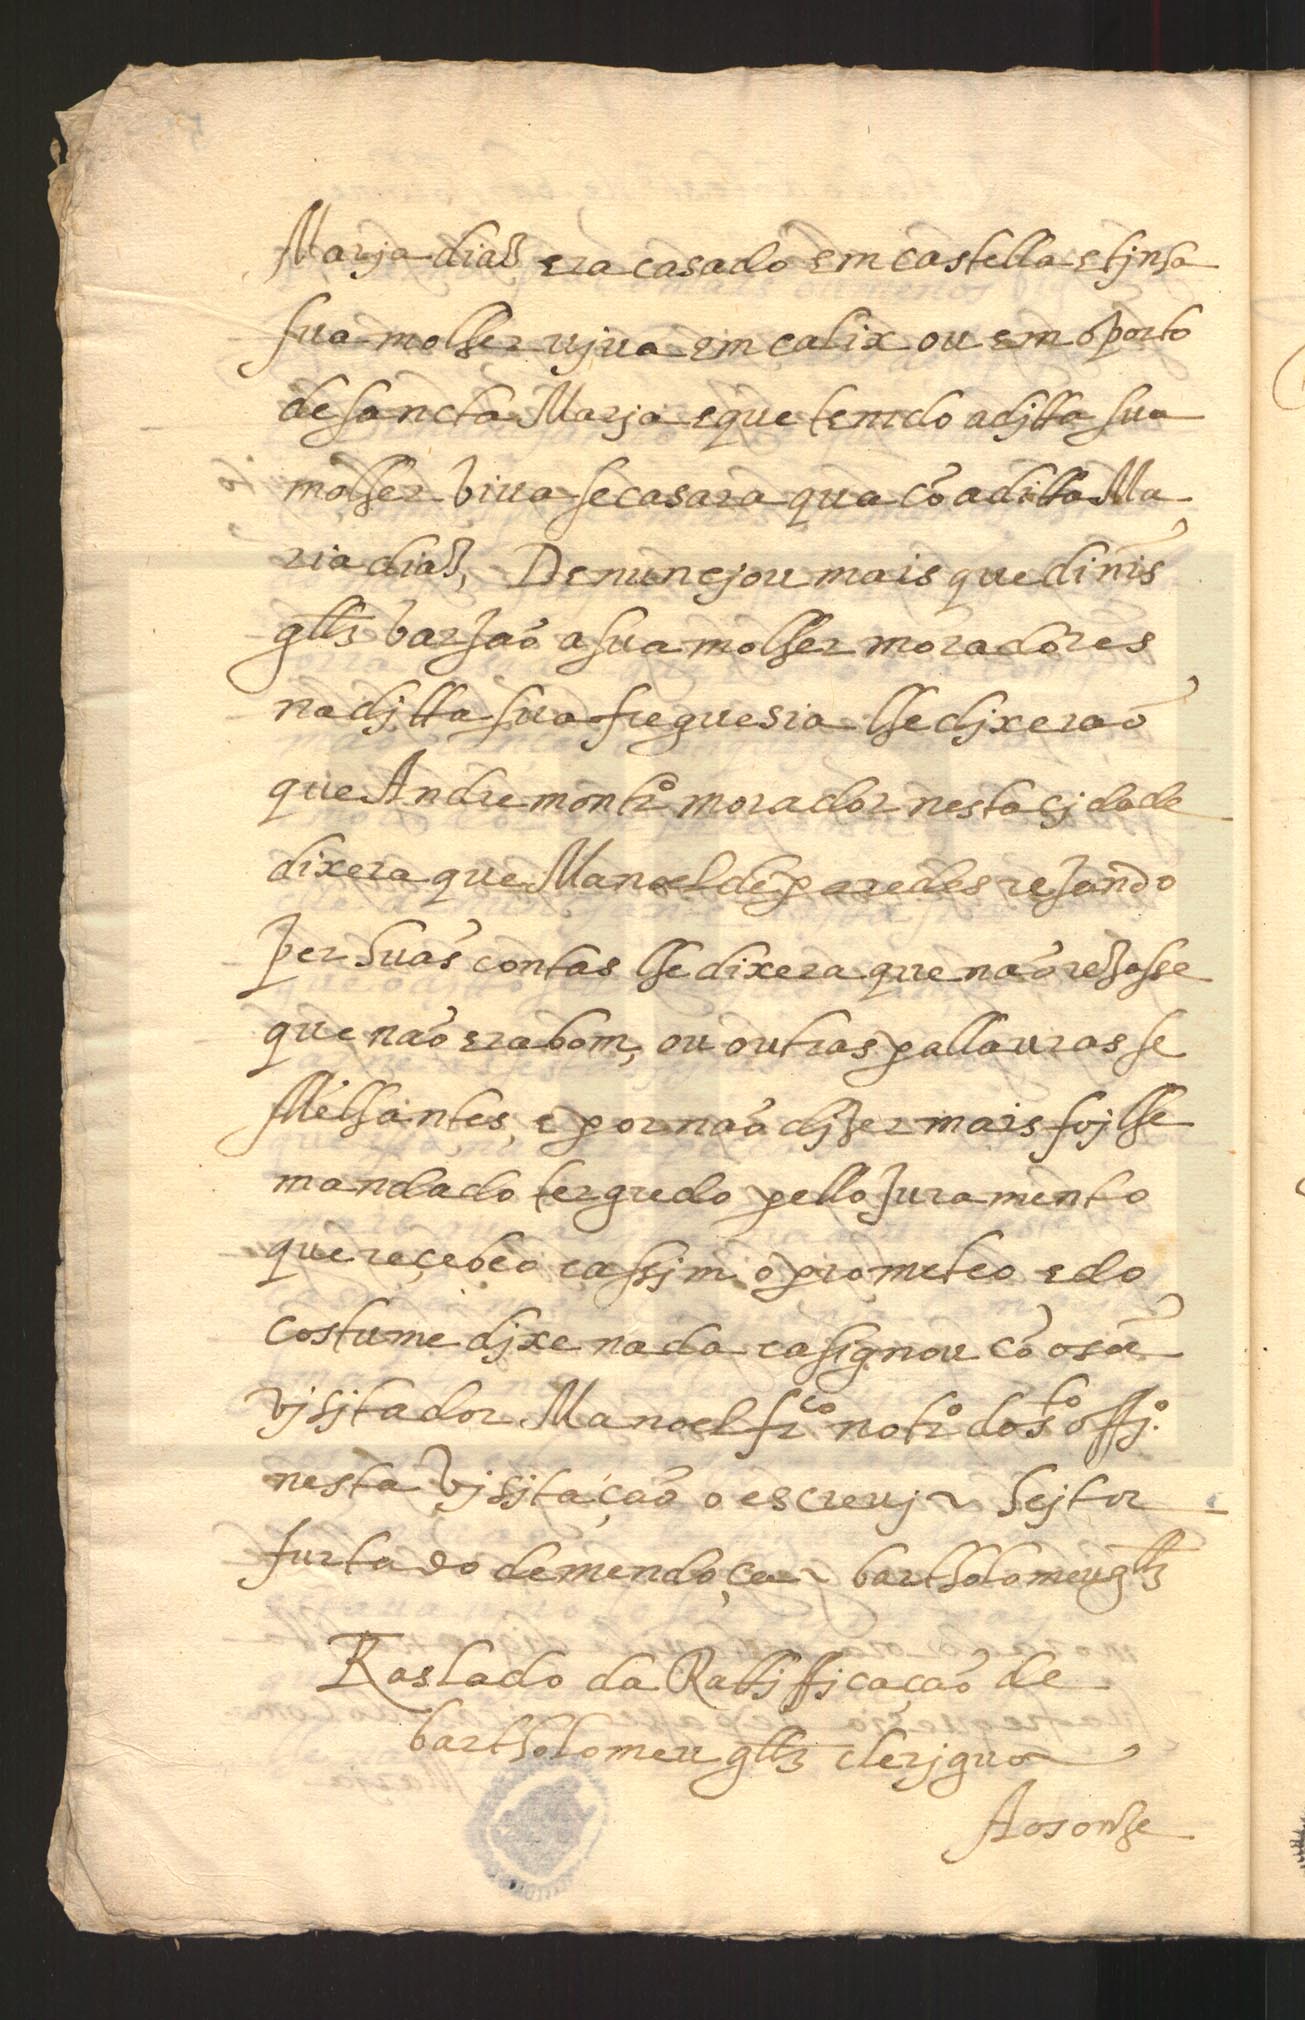 Marja dias era casado em castella e tjnha
sua molher vjua em calix ou em o porto
de sancta Marja e que temdo a djtta sua
molher viua se casara qua cõ a ditta Ma
ria dias, Denuncjou mais que dinis
glz barjaõ a sua molher moradores
na djtta sua freguesia lhe djxeraõ
que Andre montro morador nesta cjdade
dixera que Manoel de paredes rezando
per suas contas lhe dixera que naõ rezasse
que naõ era bom, ou outras pallauras se
Melhantes, e por naõ djzer mais foj lhe
mandado ter gredo pello Juramento
que reçebeo e assjm o prometeo e do
costume djxe nada e asignou cõ o sor
vjsjtador Manoel frco notro do sto offjo.
nesta vjsjtaçaõ o escreuj ~ hejtor
furtado de mendoça ~ bartholomeu glz
Traslado da Rattjffjcaçaõ de
bartholomeu glz clerjguo
Aos onze